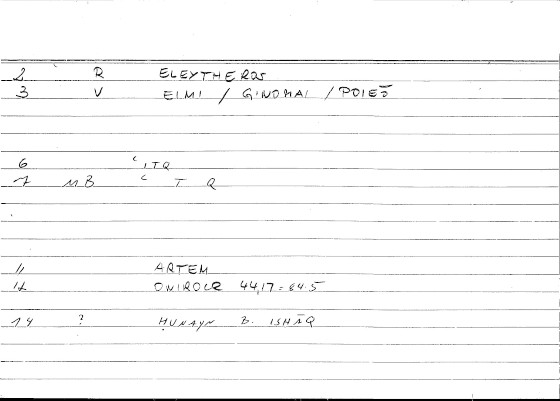 2 R ELEYTHEROS
3 V EIMI / GINOMAI / POIEŌ
6 ʿITQ
7 MB ʿ T Q
11 ARTEM
12 ONIROCR 44,17 = 64.5
14 ? ḤUNAYN B. ISḤĀQ